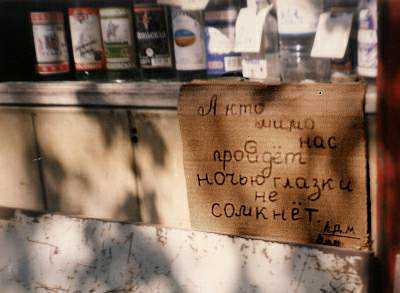 А кто
мимо
нас
пройдёт
ночью глазки
не
сомкнёт.